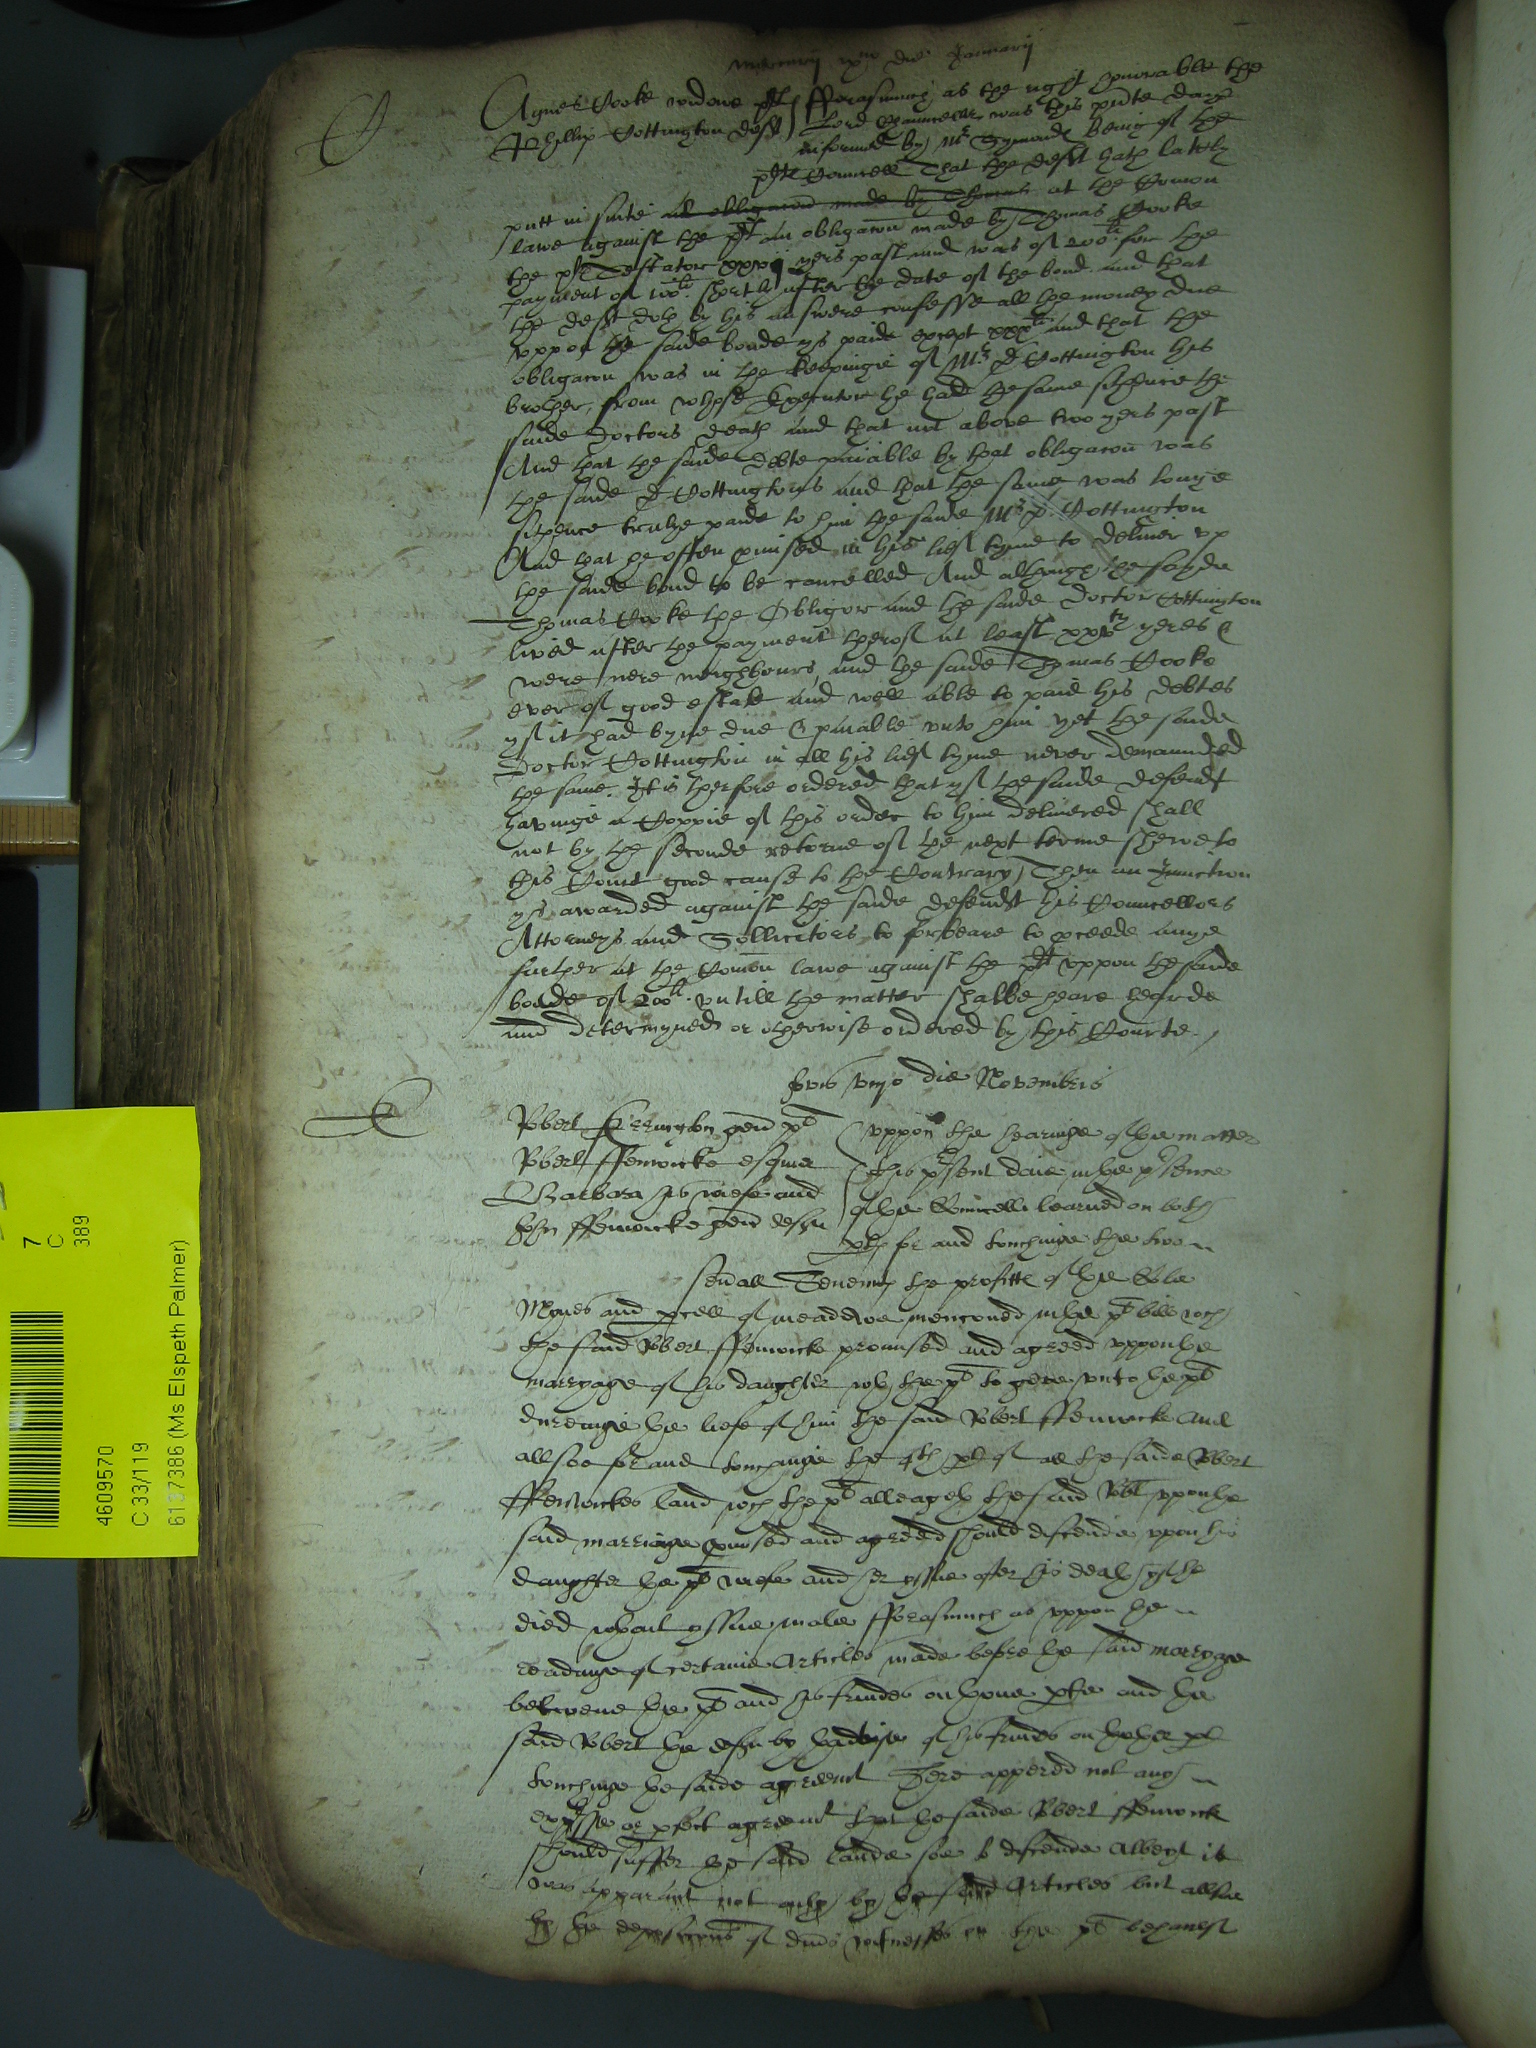 Mercurij die Januarij
C
Agnes Cooke widowe plt
Phillip Cottington deft
fforasmuch as the right honorable the
Lord Chauncellr was this pnte daye
informed by Mr Symonds being of the
plts Councell That the deft hath lately
putt in suite an obligacon made by Thomas at the Comon
lawe against the plt an obligacon made by Thomas Cooke
the plts Testator yers past and was of 200li for the
payment of 100li shortly after the date of the bond and that
the deft doth by his answere confesse all the money due
vppon the saide bonde ys paide except xxxli and that the
obligacon was in the keepinge of Mr D Cottington his
brother, from whose Executor he had the same sithence the
saide Doctors death and that not above two yers past
And that the saide debte paiable by that obligacon was
the saide D Cottingtons and that the same was longe
sithence trulye paide to him the saide Mr D. Cottington
And that he often pmised in his lief tyme to deliuer vp
the saide bond to be cancelled And although the sayde
Thomas Cooke the Obligor and the saide Doctor Cottington
lived after the payment therof at least xxvty yeres &
were nere neighbours, and the saide Thomas Cooke
ever of good estate and well able to paie his debtes
yf it had byne due & paiable vnto him yet the saide
Doctor Cottington in all his lief tyme never demaunded
the same. It is therfore ordered that yf the saide defendt
havinge a Coppie of this order to him deliuered shall
not by the seconde retorne of the next terme shewe to
this Court good cause to the Contrary, Then an Iniunction
ys awarded against the saide defendt his Councellors
Attorneys and Sollicitors to forbeare to pceede anye
further at the Comon lawe against the plt vppon the saide
bonde of 200li. vntill the matter shalbe heare hearde
and determyned or otherwise ordered by this Courte.
Jovis die Novembris
Robert gen plt
Robert ffenwicke esquier
Barbara his wiefe and
John ffenwicke gen defts
vppon the hearinge of the matter
this present daie in the psence
of the Councell learned on both
pts for and touchinge the two
seuall Tenemts the profitt of the Cole
Mynes and pcell of meadowe menconed in the plts bill wch
the said Robert ffenwicke promised and agreed vppon the
marryage of his daughter wth the plt to geve vnto the plt
dureinge the liefe of him the said Robert ffenwicke And
allsoe for and touchinge the 4th pte of all the saide Robert
ffenwickes land wch the plt alleageth the said Robt vpon the
said marriage pmised and agreed should discende vpon his
daughter the plts wiefe and her yssue after his death yf he
died wthout yssue male fforasmuch as vppon the
readinge of certaine Articles made before the said marryage
betweene the plt and his frindes on thone ptie and the
said Robert the deft by thadvise of his frinds on thother pt
touchinge the saide agreemt There appered not any
expresse or pfect agreemt that the saide Robert ffenwick
should suffer the said lande soe to discende Albeyt it
was apparant not onlye by the said Articles but allsoe
by the deposicons of diuers witnesses on the plts behaulf
7
C
389
4609570
C 33/119
6137386 (Ms Elspeth Palmer)